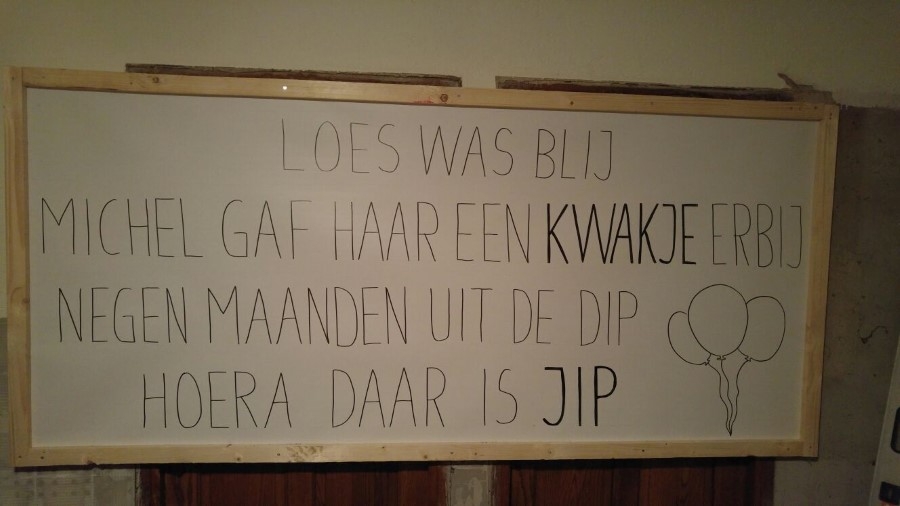 LOES WAS BLIJ
MICHEL GAF HAAR EEN KWAKJE ERBIJ
NEGEN MAANDEN UIT DE DIP
HOERA DAAR IS JIP